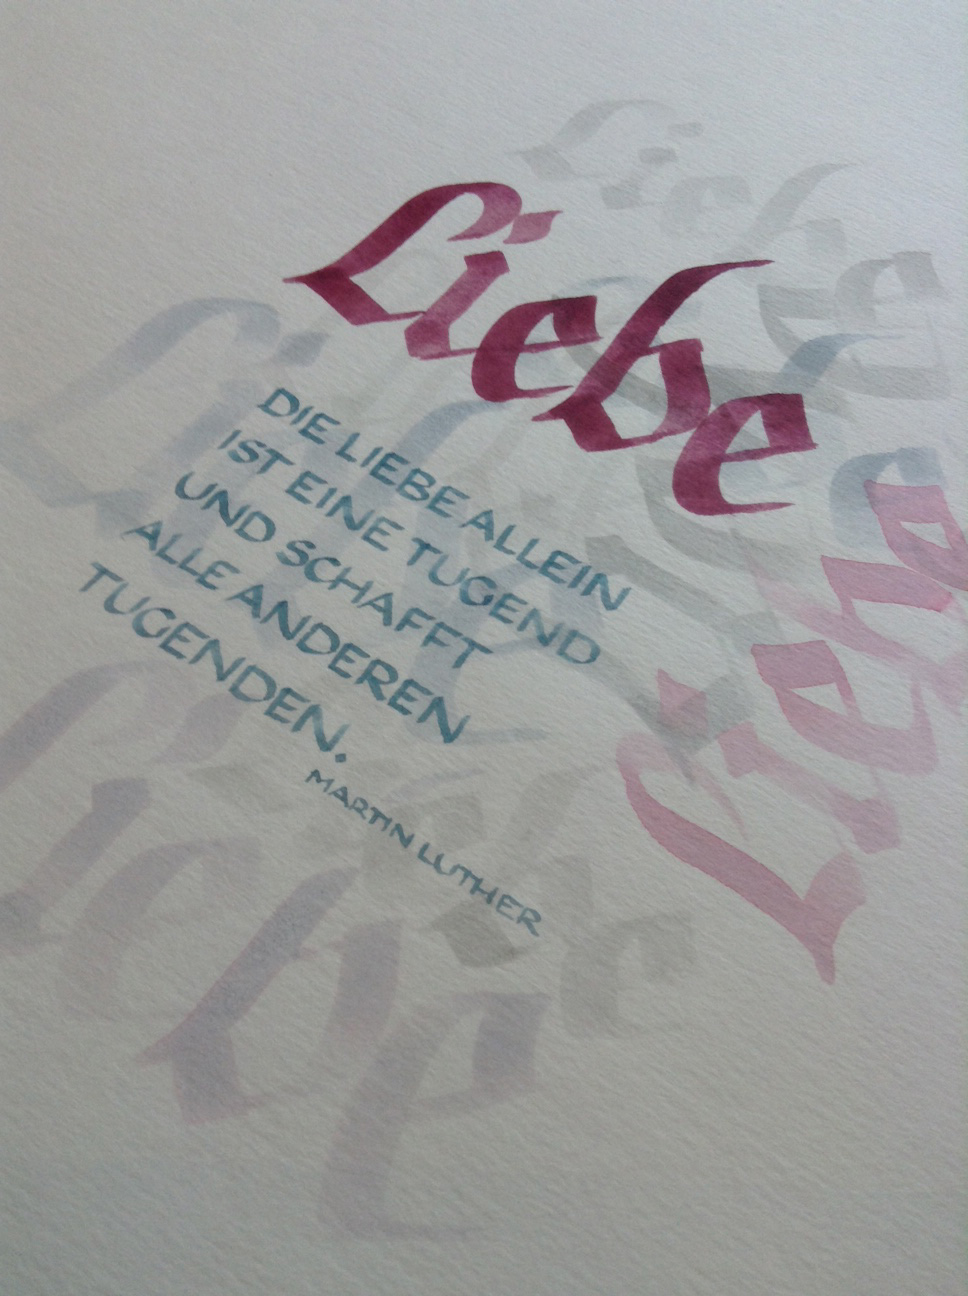 Liebe
Liebe
Liebe
DIE LIEBE ALLEIN
IST EINE TUGEND
UND SCHAFFT
ALLE ANDEREN
TUGENDEN.
MARTIN LUTHER
Liebe
Liebe
Liebe